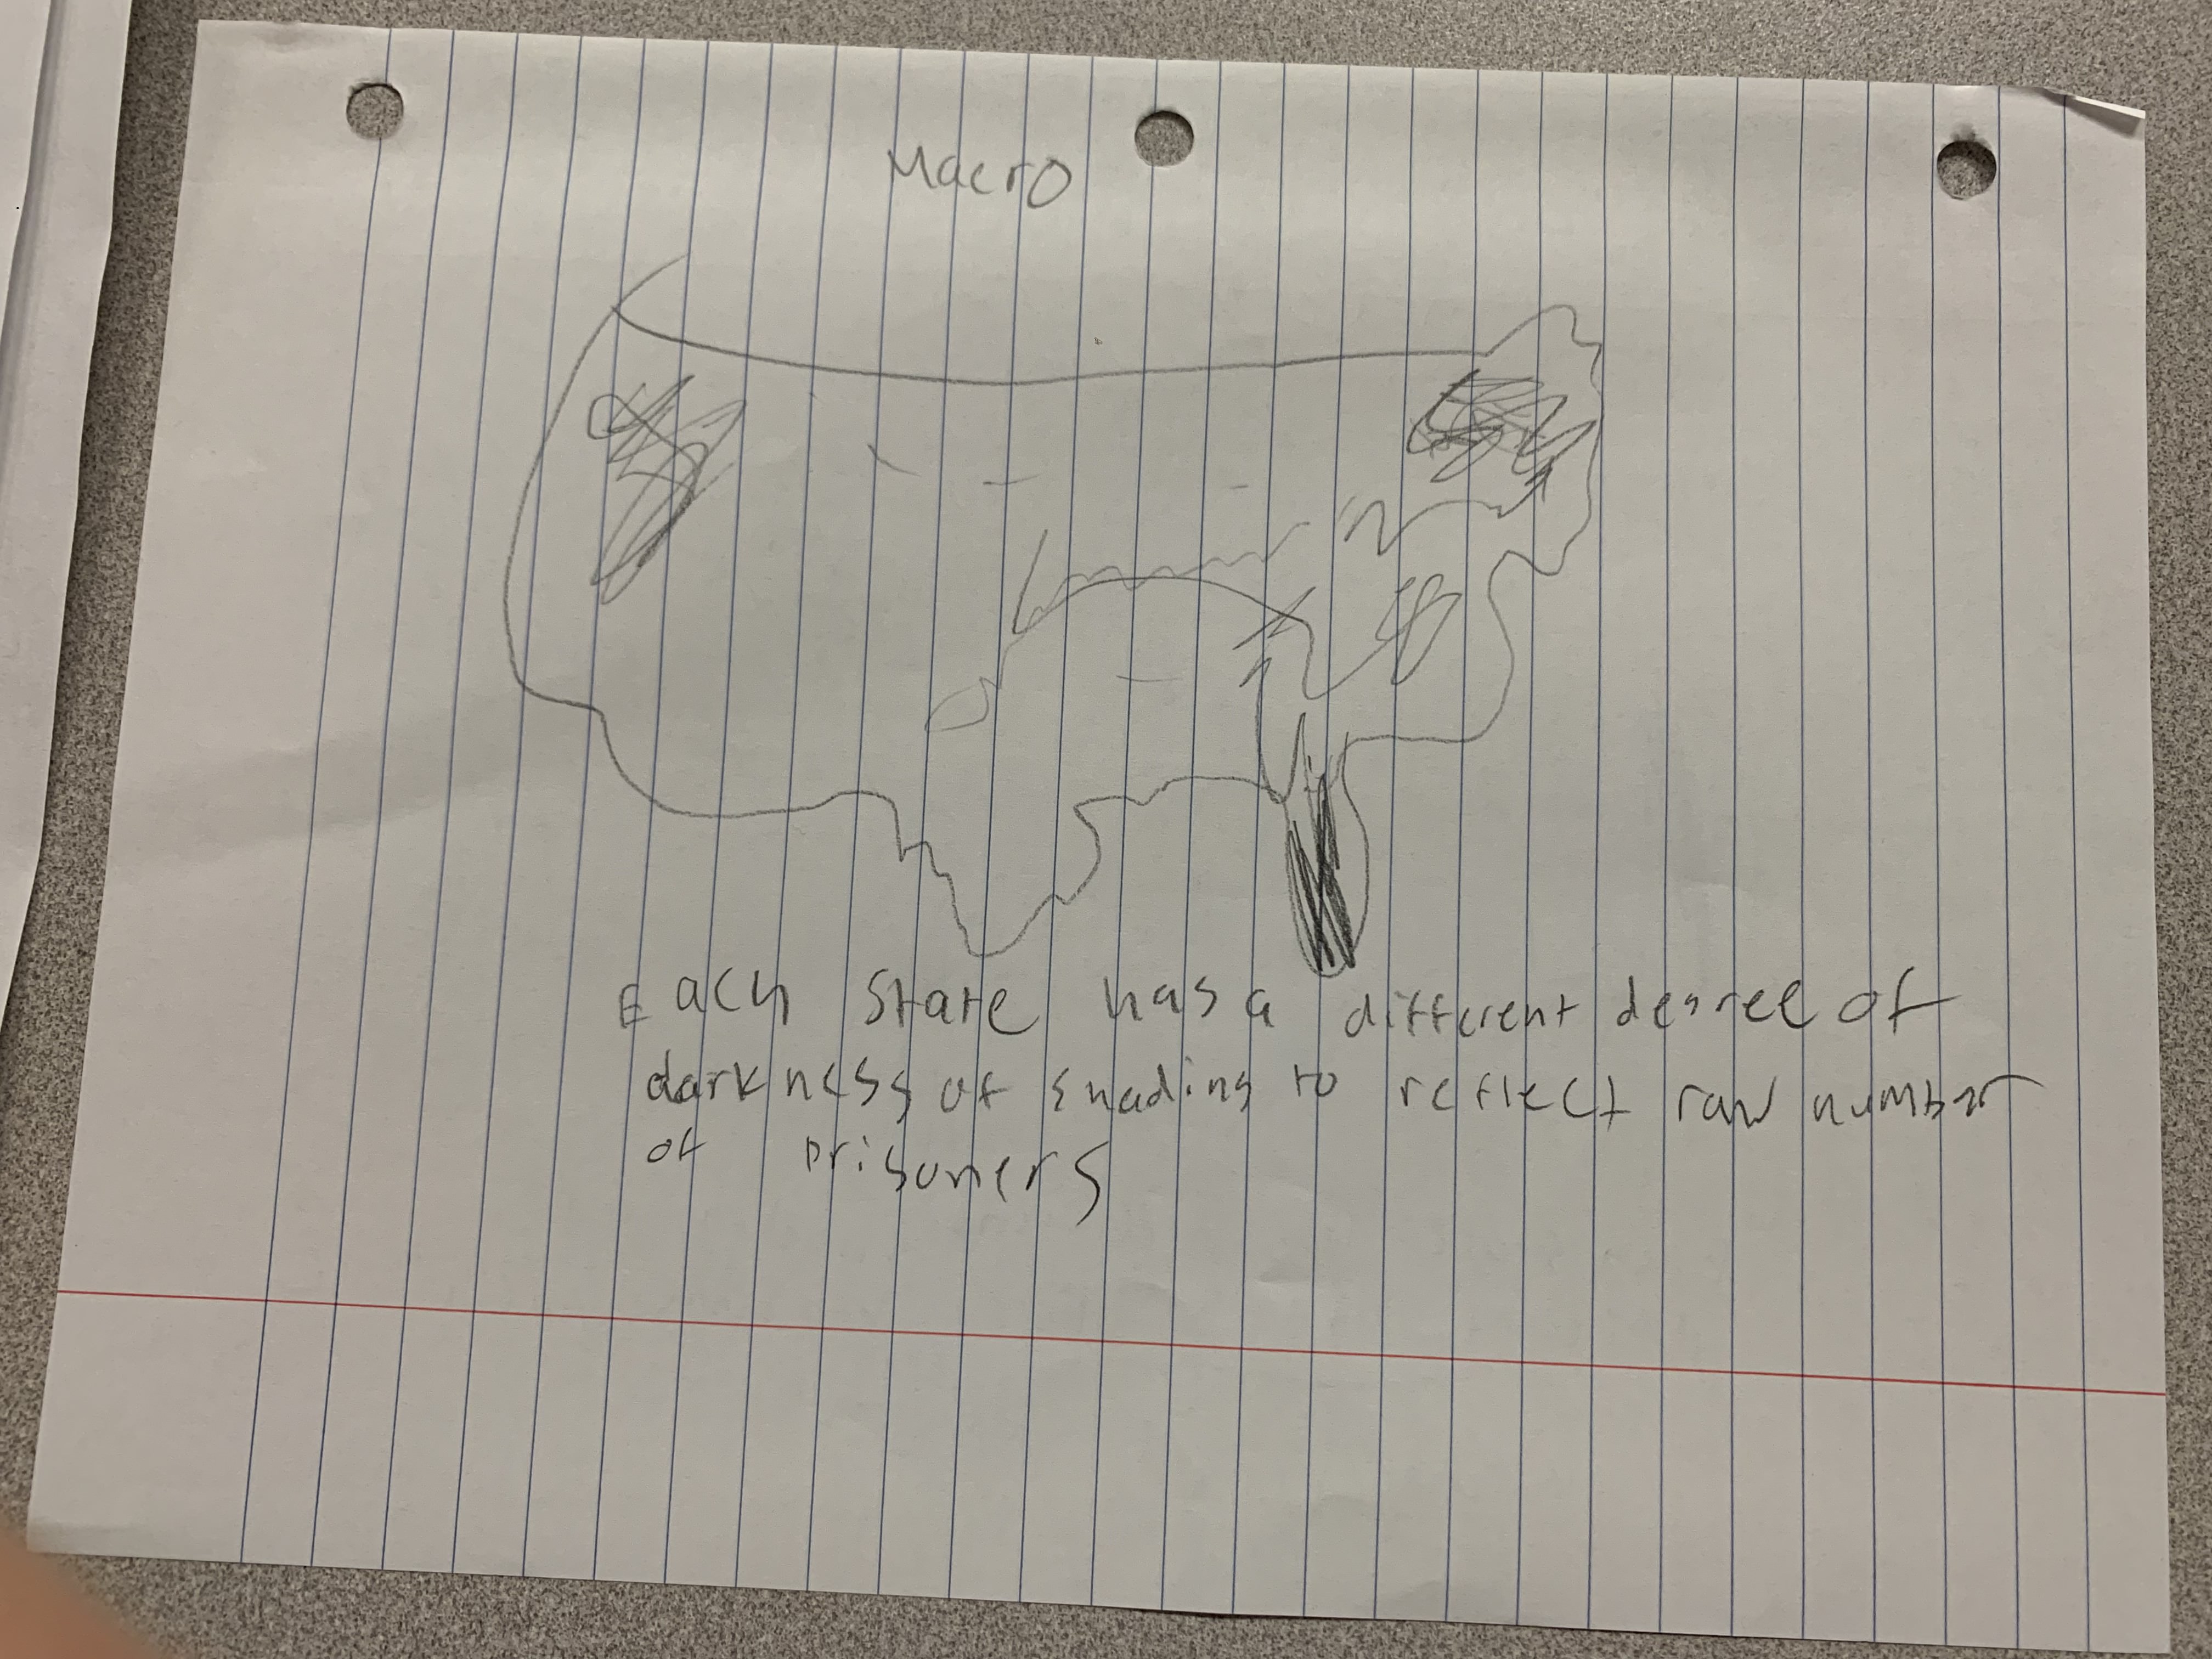 Macro
Each state has a different degree of
darkness of shading to reflect raw number
of prisoners